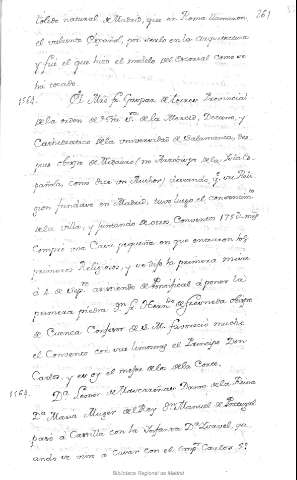 261
Toledo natural de Madrid, que en Roma llamaron
el valiente Español, por serlo en la Arquitectura
y fue el que hizo el modelo del Escorial como se
ha tocado.
1564. El Mro. fr. Gaspar de torres Provincial
de la orden de Ntra. Sra. de la Merced, Decano, y
Cathedratico de la universidad de Salamanca, des
pues obispo de Medauro (no Arzobispo de la Isla Es
pañola, como dice un Author) deseando q. su Reli
gion fundase en Madrid, tuvo luego el consentimto.
de la villa, y juntando de otros Conventos 1750
compró una Casa pequeña en que entraron los
primeros Religiosos, y se dijo la primera misa
á 2. de
primera piedra Dn. fr. de Fresneda obispo
de Cuenca Confesor de S. M. favoreció mucho
el Convento con sus limosnas el Principe Don
Carlos, y es oy el mejor de los de la Corte.
1564. Da. Leonor de Mascareñas Dama de la Reina
Da. Maria Muger del Rey Dn. Manuel de Portugal
pasó a Castilla con la Infanta Da. Ysavel, qu
ando se vino á casar con el Emp. Carlos 5º
Biblioteca Regional de Madrid